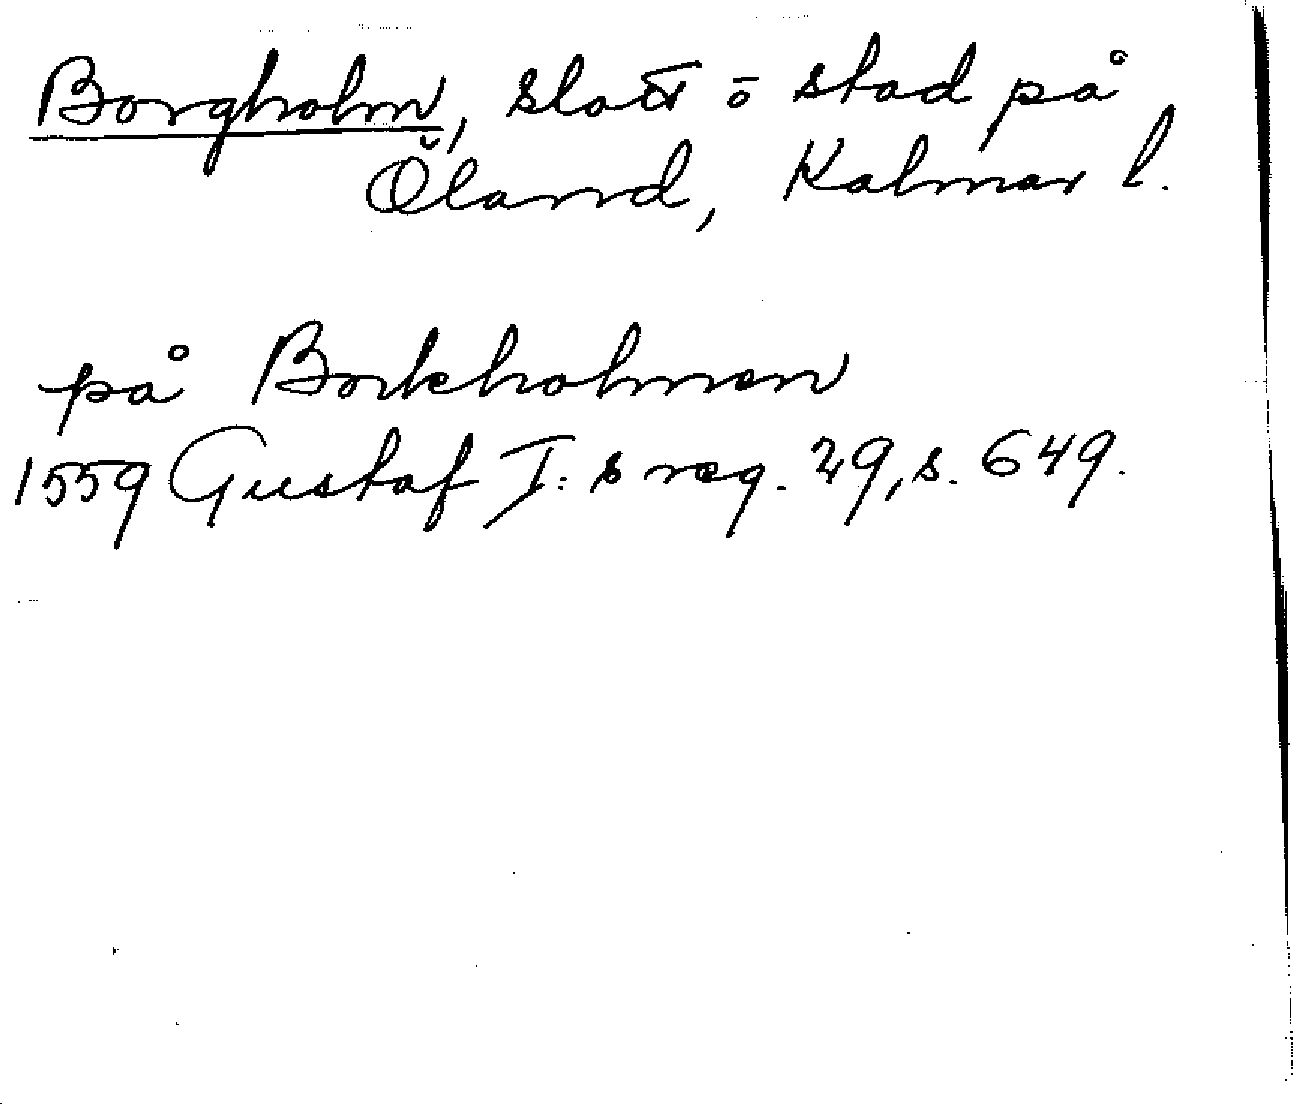 Borgholm, slott ō stad på
Öland, Kalmar l.
på Borkholmen
1559 Gustaf I:s reg. 29, s. 649.